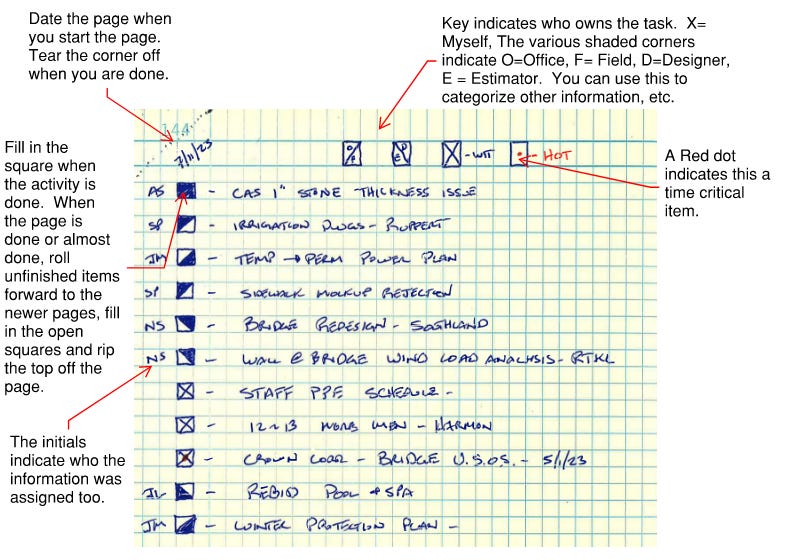 Date the page when
you start the page.
Tear the corner off
when you are done.
Key indicates who owns the task. X=
Myself, The various shaded corners
indicate O=Office, F= Field, D=Designer,
E = Estimator. You can use this to
categorize other information, etc.
144
7/11/23
O/F
E D
- WTT
- HOT
A Red dot
indicates this a
time critical
item.
Fill in the
square when
the activity is
done. When
the page is
done or almost
done, roll
unfinished items
forward to the
newer pages, fill
in the open
squares and rip
the top off the
page.
The initials
indicate who the
information was
assigned too.
AS - CAS 1" STONE THICKNESS ISSUE
SP - IRRIGATION DWGS - RUPPERT
JM - TEMP → PERM POWER PLAN
SP - SIDEWALK MOCKUP REJECTION
NS - BRIDGE REDESIGN - SOUTHLAND
NS - WALL @ BRIDGE WIND LOAD ANALYSIS - RTKL
- STAFF PPE SCHEDULE -
- 12 ~ 13 MORE MEN - HARMON
- CROWN COOR - BRIDGE U.S.O.S. - 5/1/23
JL - REBID POOL & SPA
JM - WINTER PROTECTION PLAN -